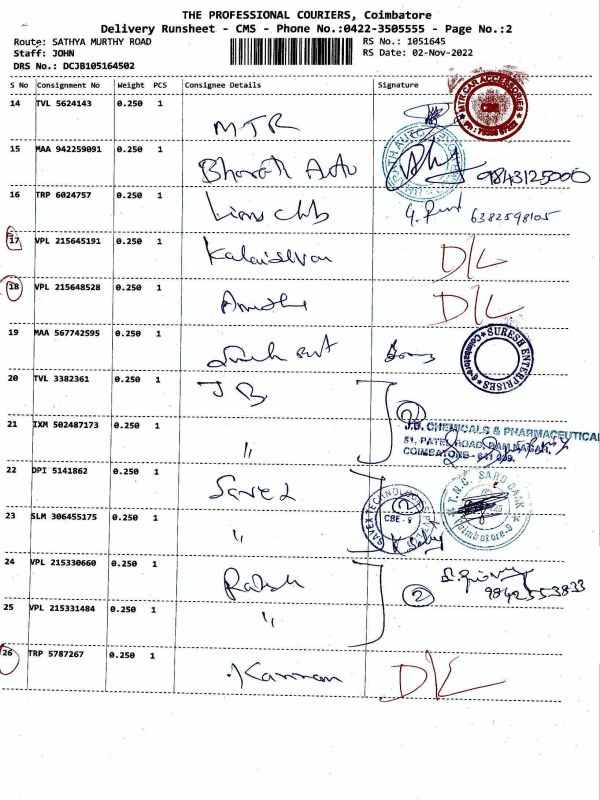 THE PROFESSIONAL COURIERS, Coimbatore
Delivery Runsheet - CMS - Phone No.:0422-3505555 - Page No.:2
Route: SATHYA MURTHY ROAD RS No.: 1051645
Staff: JOHN RS Date: 02-Nov-2022
DRS No.: DCJB105164502
S No Consignment No Weight PCS Consignee Details Signature
14 TVL 5624143 0.250 1 MTR MTR CAR ACCESSORIES
15 MAA 942259091 0.250 1 Bharath Auto 9843125000
16 TRP 6024757 0.250 1 Lions club 6382598105
17 VPL 215645191 0.250 1 Kalaiselvan D/L
18 VPL 215648528 0.250 1 D/L
19 MAA 567742595 0.250 1 SURESH ENTERPRISES Coimbatore-9
20 TVL 3382361 0.250 1 JB 2
21 IXM 502487173 0.250 1 " J.B. CHEMICALS & PHARMACEUTICA
51, PATEL ROAD, RAM NAGAR,
COIMBATORE - 641 009.
22 DPI 5141862 0.250 1 Savex SAVEX TECHNOLOGIES CBE - 9 2
23 SLM 306455175 0.250 1 "
24 VPL 215330660 0.250 1 2 9842553833
25 VPL 215331484 0.250 1 "
26 TRP 5787267 0.250 1 Kannan D/L